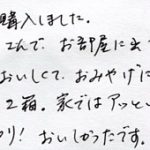 購入しました。
こんで、お部屋に出
おいしくて、おみやげに
2箱。家ではアッとい
り! おいしかったです。